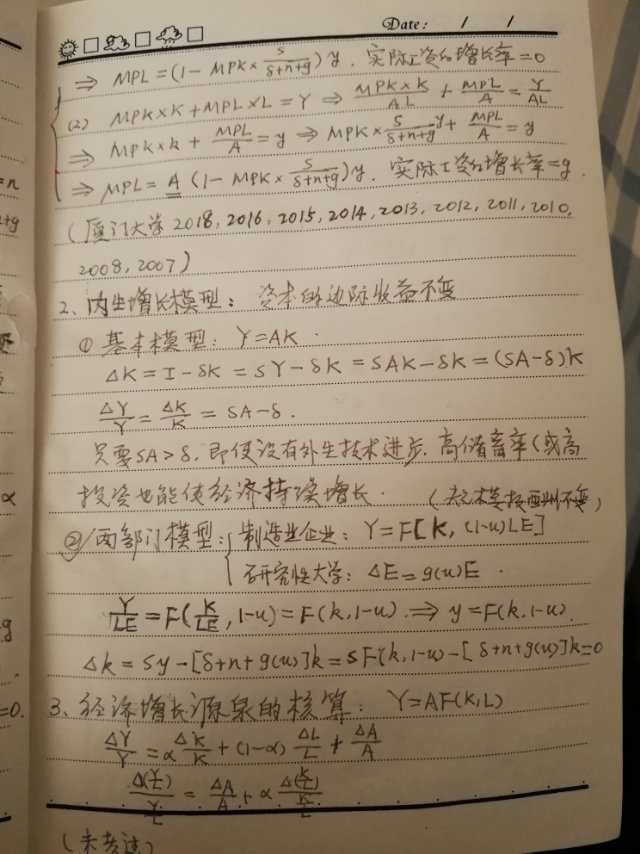 Date: / /
⇒ MPL = (1 - MPK × s/(δ+n+g)) y. 实际工资的增长率=0
(2) MPK×K + MPL×L = Y ⇒ MPK×K/AL + MPL/A = Y/AL
⇒ MPK×k + MPL/A = y ⇒ MPK × s/(δ+n+g) y + MPL/A = y
⇒ MPL = A (1 - MPK × s/(δ+n+g)) y. 实际工资的增长率=g.
(厦门大学 2018, 2016, 2015, 2014, 2013, 2012, 2011, 2010,
2008, 2007)
2、内生增长模型: 资本的边际收益不变
① 基本模型: Y=AK.
ΔK = I - δK = sY - δK = sAK - δK = (sA-δ)K
ΔY/Y = ΔK/K = sA-δ.
只要sA>δ, 即使没有外生技术进步, 高储蓄率(或高
投资也能使经济持续增长.
② 两部门模型: 制造业企业: Y=F[K, (1-u)LE]
研究性大学: ΔE=g(u)E.
Y/LE = F(K/LE, 1-u) = F(k, 1-u) ⇒ y=F(k, 1-u).
Δk = sy - [δ+n+g(u)]k = sF(k, 1-u) - [δ+n+g(u)]k=0
3、经济增长源泉的核算: Y=AF(K,L)
ΔY/Y = α ΔK/K + (1-α) ΔL/L + ΔA/A
Δ(Y/L)/(Y/L) = ΔA/A + α Δ(K/L)/(K/L)
(未考过)
=n
α
g
=0.